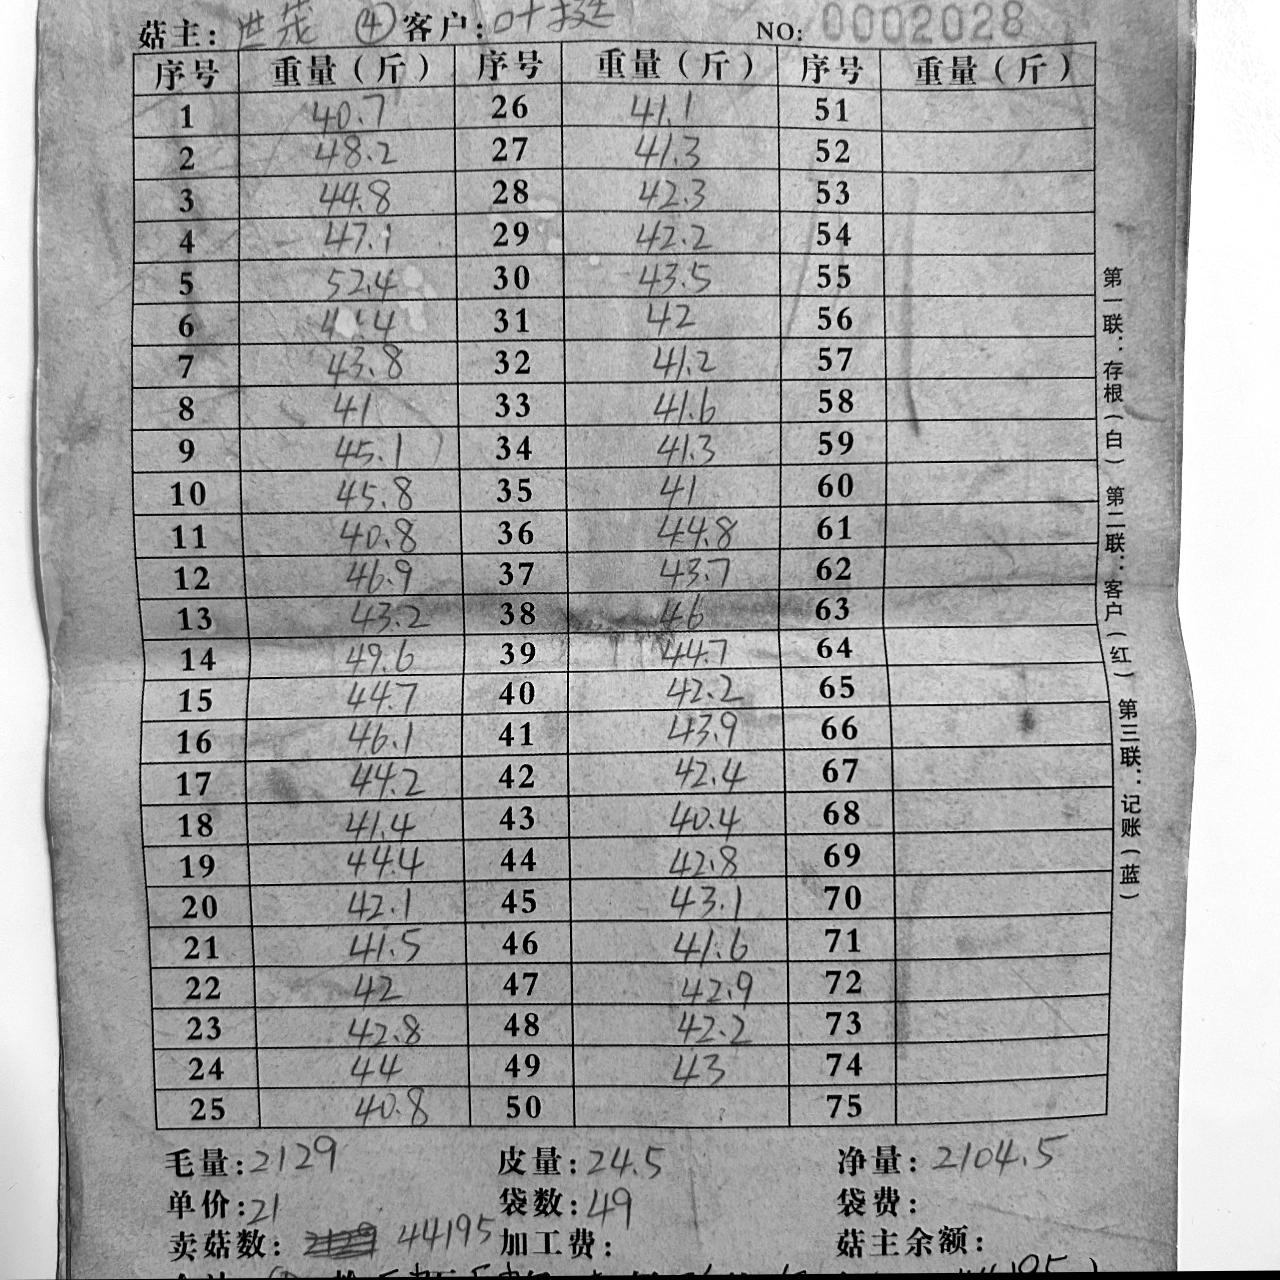 菇主: 世茂 ④ 客户: 叶 NO: 0002028
序号 重量(斤) 序号 重量(斤) 序号 重量(斤)
1 40.7 26 41.1 51
2 48.2 27 41.3 52
3 44.8 28 42.3 53
4 47.1 29 42.2 54
5 52.4 30 43.5 55
6 31 42 56
7 43.8 32 41.2 57
8 41 33 41.6 58
9 45.1 34 41.3 59
10 45.8 35 41 60
11 40.8 36 44.8 61
12 46.9 37 43.7 62
13 43.2 38 46 63
14 49.6 39 44.7 64
15 44.7 40 42.2 65
16 46.1 41 43.9 66
17 44.2 42 42.4 67
18 41.4 43 40.4 68
19 44.4 44 42.8 69
20 42.1 45 43.1 70
21 41.5 46 41.6 71
22 42 47 42.9 72
23 42.8 48 42.2 73
24 44 49 43 74
25 40.8 50 75
毛量: 2129 皮量: 24.5 净量: 2104.5
单价: 21 袋数: 49 袋费:
卖菇数: 44195 加工费: 菇主余额:
第一联:存根(白) 第二联:客户(红) 第三联:记账(蓝)